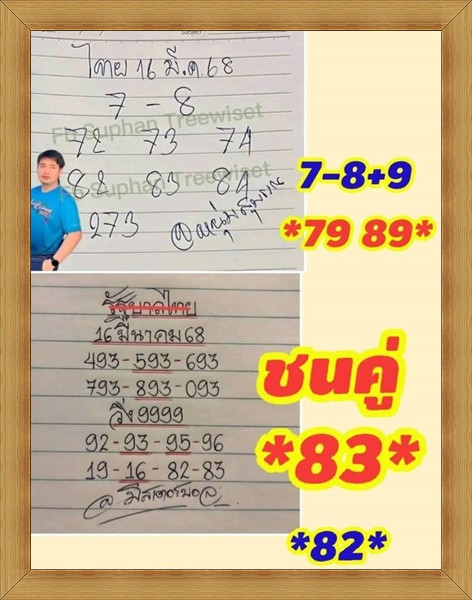 ไทย 16 มี.ค. 68
7 - 8
Fb Suphan Treewiset
72 73 74
82 83 84
Fb Suphan Treewiset
273
7-8+9
*79 89*
รัฐบาลไทย
16 มีนาคม 68
493-593-693
793-893-093
วิ่ง 9999
92-93-95-96
19-16-82-83
ชนคู่
*83*
*82*